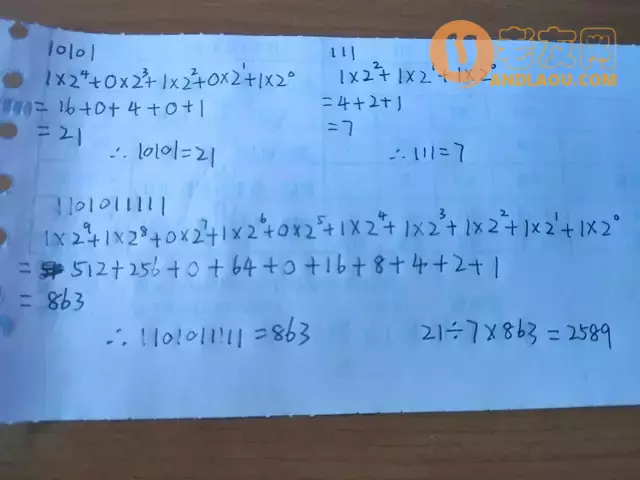 老友网
ANDLAOU.COM
10101
1×2⁴+0×2³+1×2²+0×2¹+1×2⁰
=16+0+4+0+1
=21
∴10101=21
111
1×2²+1×2¹+1×2⁰
=4+2+1
=7
∴111=7
1101011111
1×2⁹+1×2⁸+0×2⁷+1×2⁶+0×2⁵+1×2⁴+1×2³+1×2²+1×2¹+1×2⁰
=512+256+0+64+0+16+8+4+2+1
=863
∴1101011111=863
21÷7×863=2589